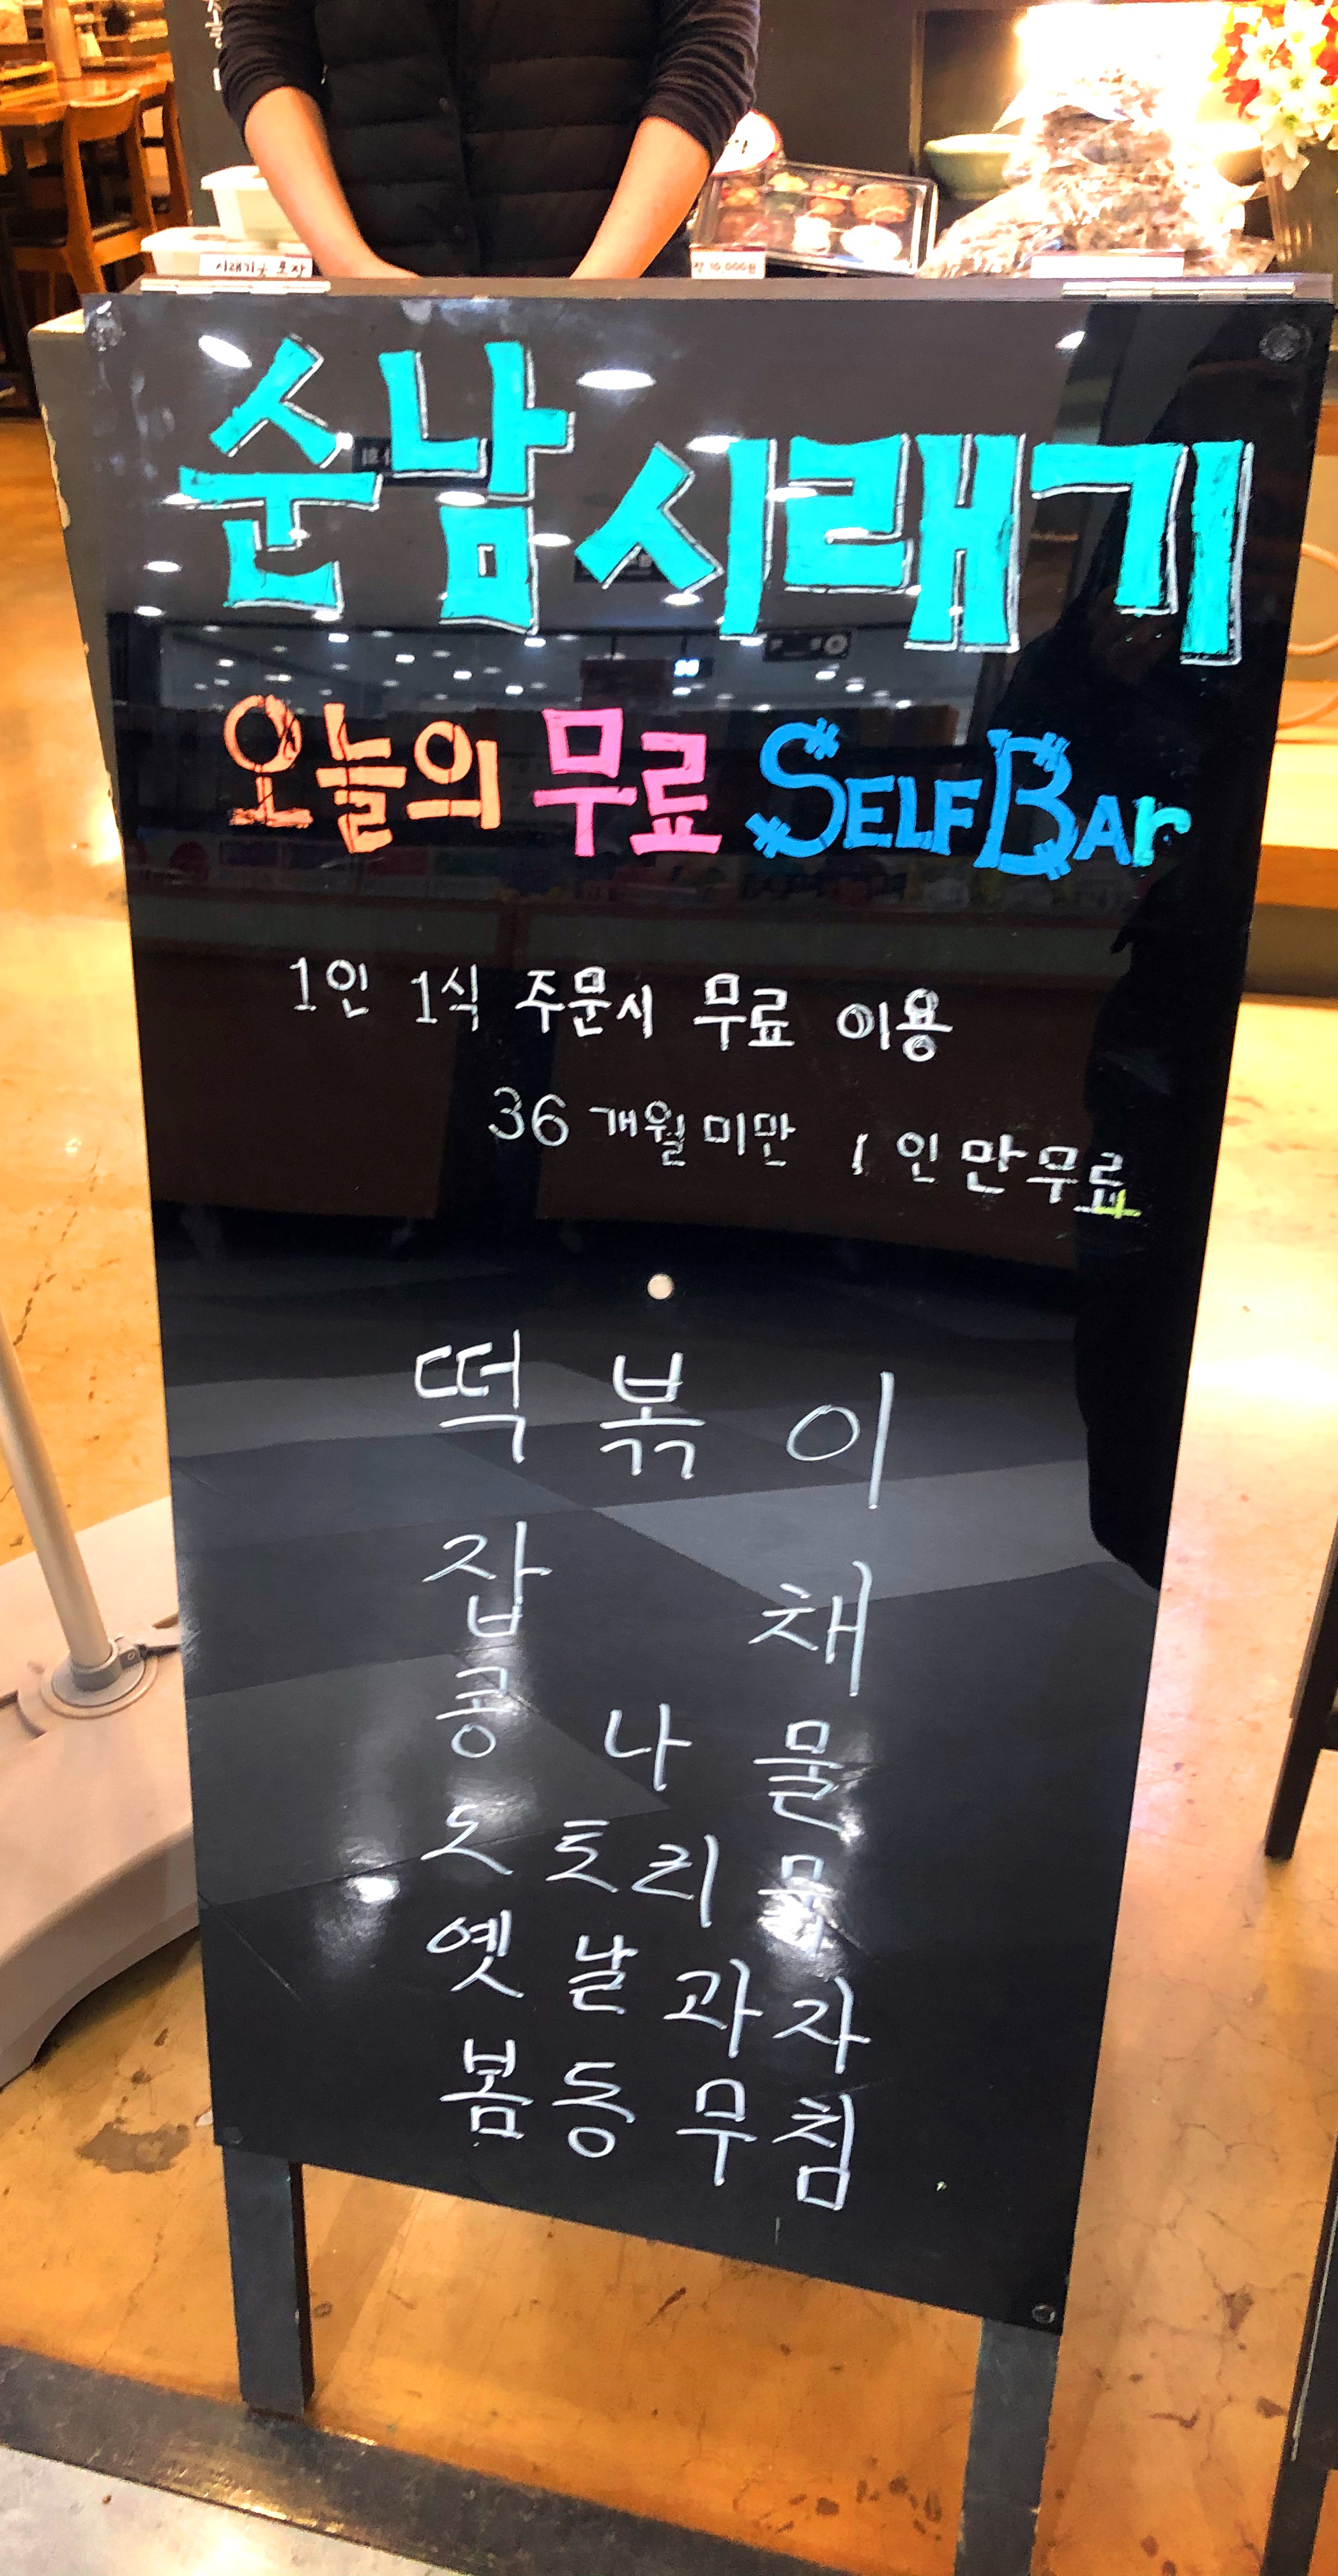 순남시래기
오늘의 무료 SELF BAr
1인 1식 주문시 무료 이용
36개월미만 1인만무료
떡볶이
잡채
콩나물
도토리묵
옛날과자
봄동무침